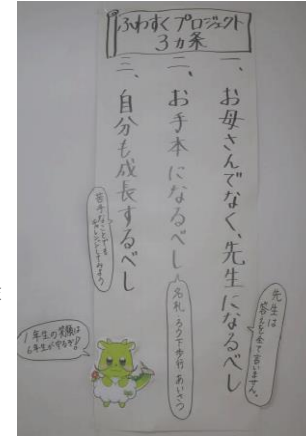 ふわすくプロジェクト
3ヵ条
一、お母さんでなく、先生になるべし
先生は
答えを全て言いません。
二、お手本になるべし
名札 ろう下歩行 あいさつ
三、自分も成長するべし
苦手なことでも
チャレンジしてみよう
1年生の笑顔は
6年生が守るぞ!